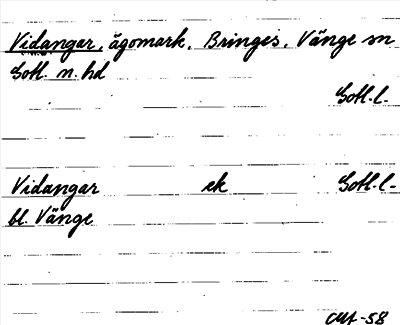 Vidangar, ägomark, Bringes, Vänge sn
Gotl. n. hd
Gotl. l.
Vidangar ek Gotl. l.
bl. Vänge
-58